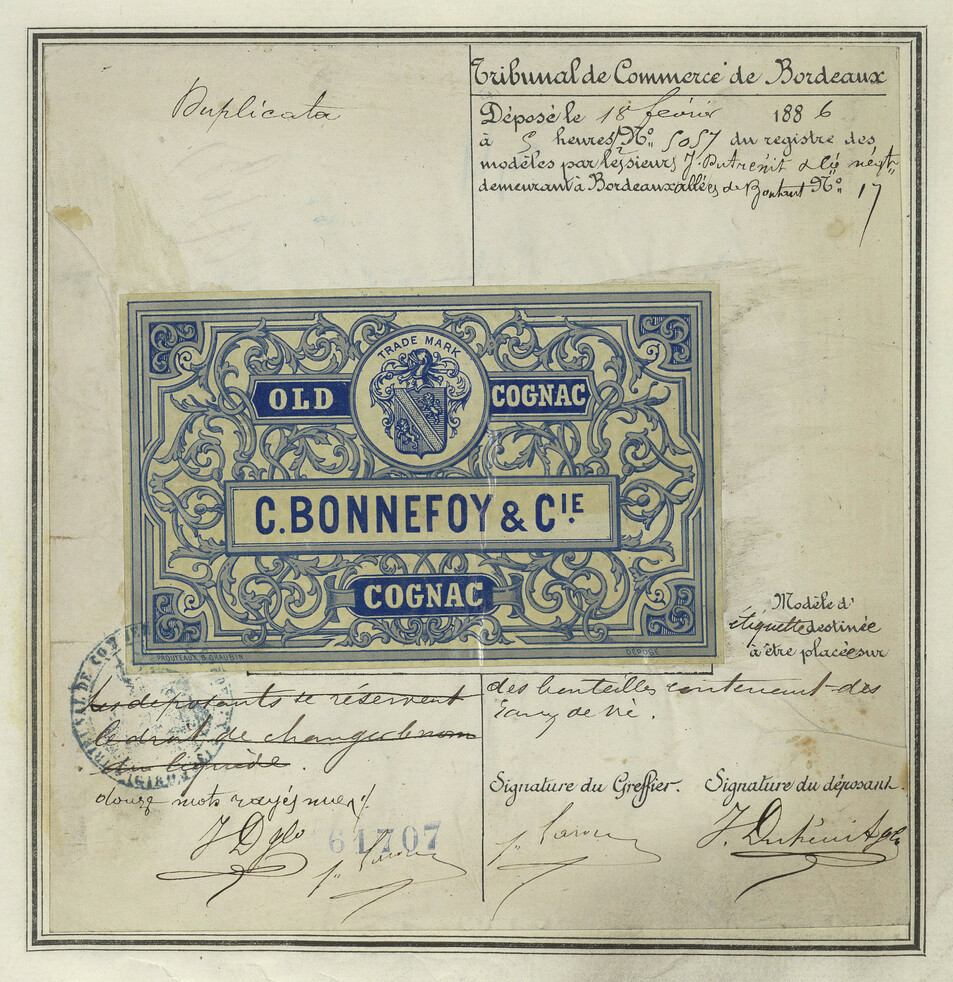 Duplicata
Tribunal de Commerce de Bordeaux
Déposé le 18 février 1886
à 5 heures Nº 5057 du registre des
modèles par les sieurs J. Dutrénit & Cie négts
demeurant à Bordeaux allées de Boutaut Nº 17
TRADE MARK
OLD COGNAC
C. BONNEFOY & CIE.
COGNAC
PROUTEAUX B. CHAUBIN
DÉPOSÉ
Modèle d'
étiquette destinée
à être placée sur
des bouteilles contenant des
Eaux de Vie.
Les déposants se réservent
le droit de changer le nom
du liquide.
douze mots rayés nuls
J D & Co
61707
TRIBUNAL DE COMMERCE
Signature du Greffier.
Signature du déposant
J. Dutrénit & Co